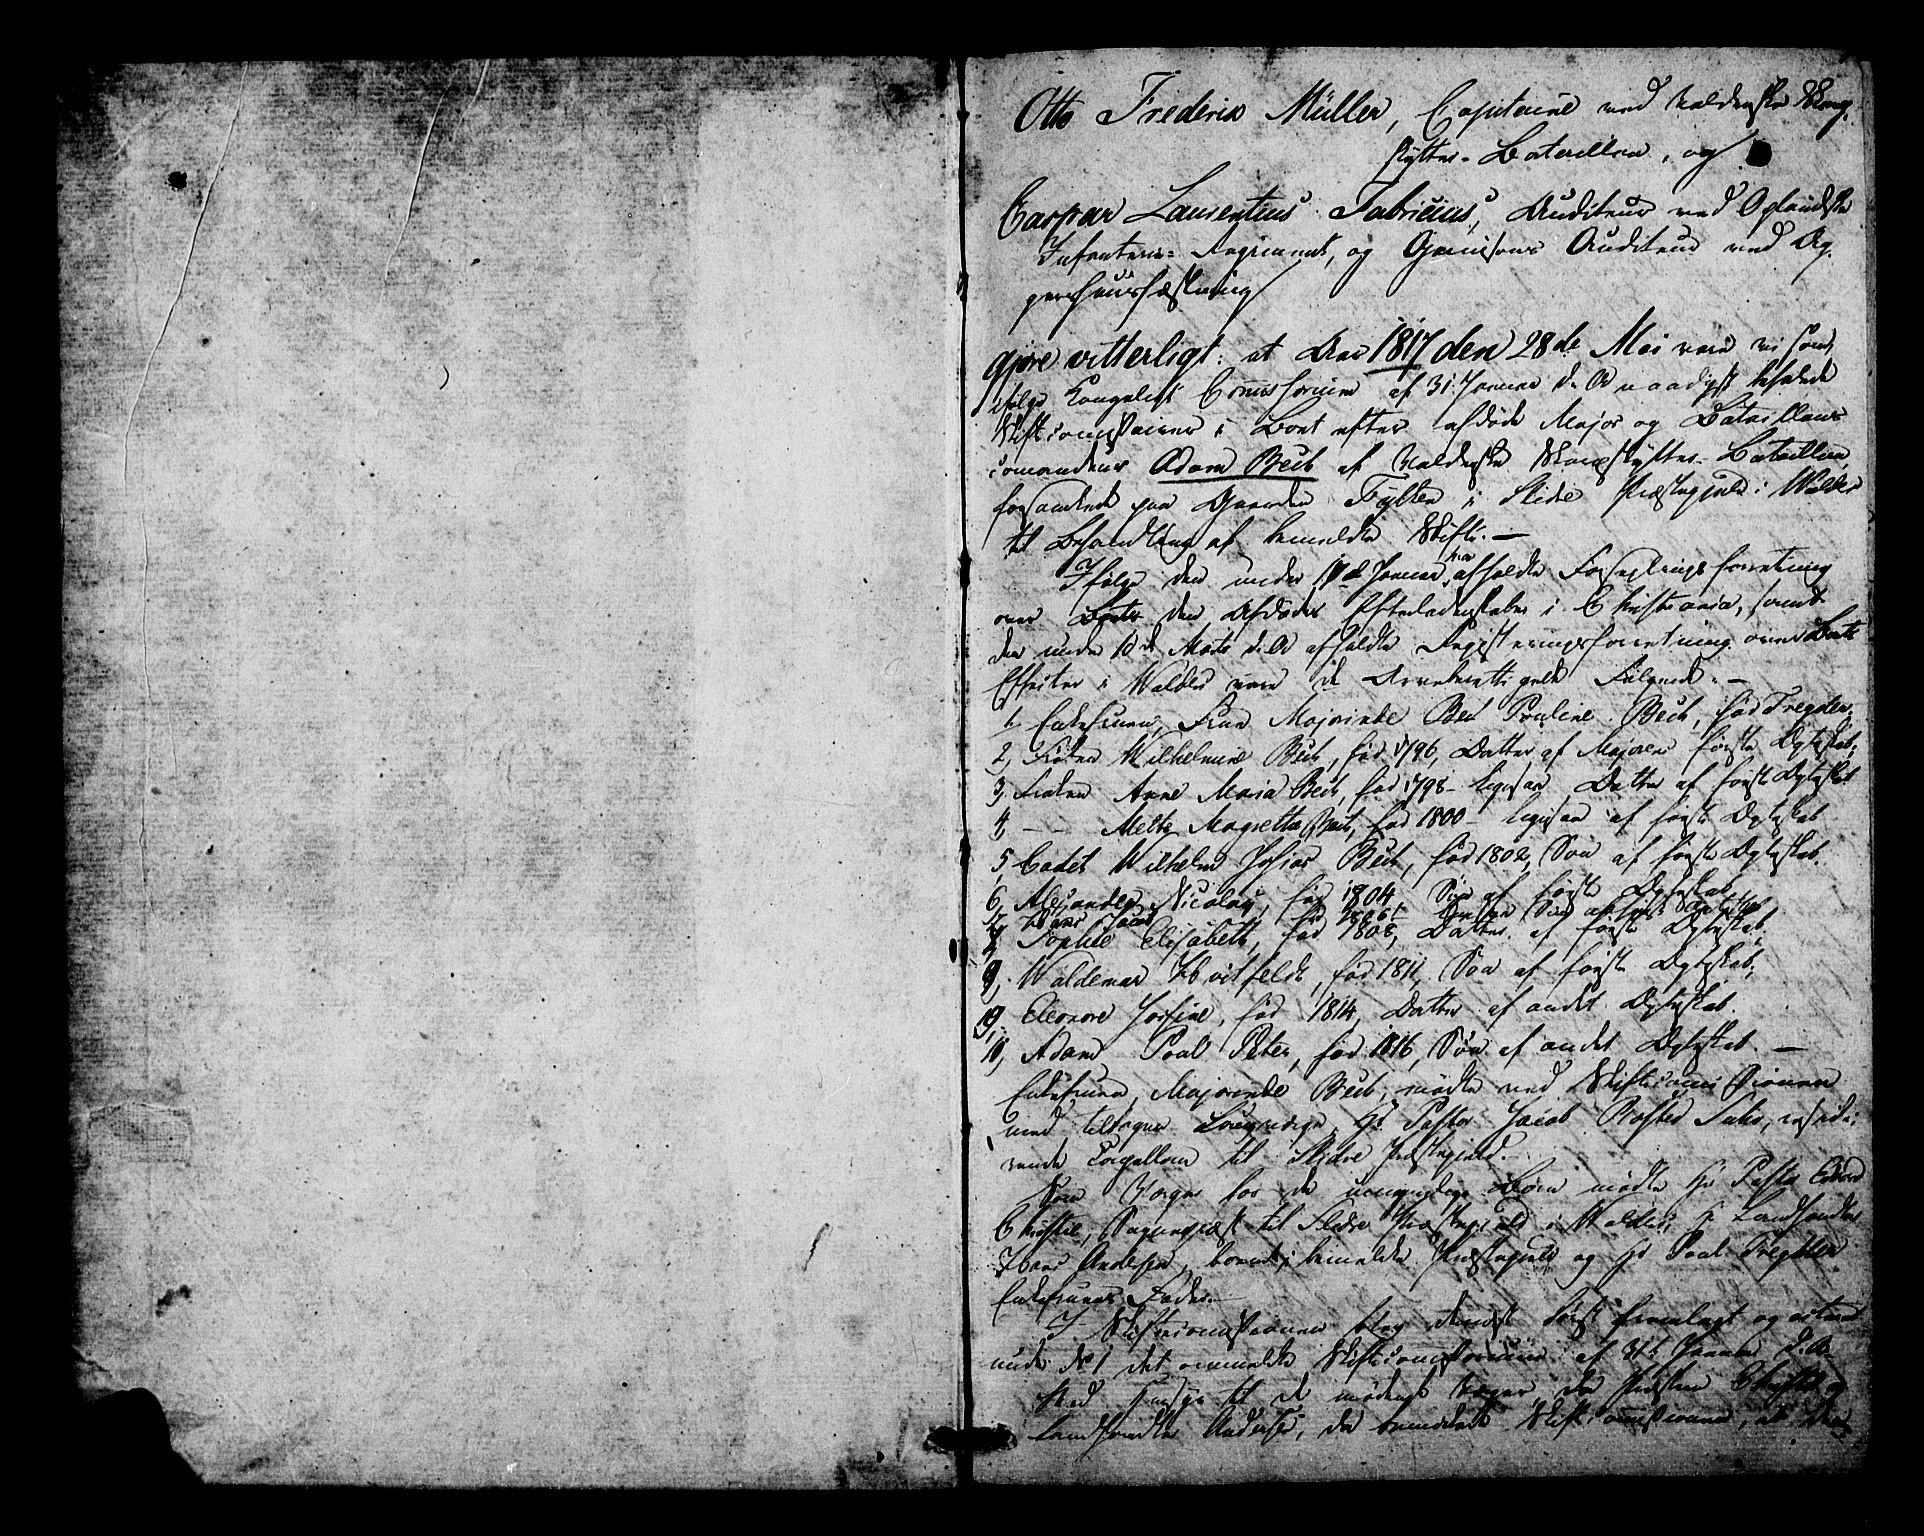 Otto Frederik Müller, Capitaine ved Valderske Skarp
skytter-Bataillon, og
Caspar Laurentius Fabricius, Auditeur ved Oplandske
Infanterie-Regiment, og Garnisons Auditeur ved Ag-
gershuus Fæstning
gjøre vitterligt: at Aar 1817 den 28de Mai vare vi som
ifølge Kongeligt Commissorium af 31. Januar d. A. naadigst befalede
Skiftecommissairer i Boet efter afdøde Major og Bataillons
comandeur Adam Beck af Valderske Skarpskytter-Bataillon
forsamlede paa Gaarden i Slidre Præstegjeld i Walders
til Behandling af bemeldte Skifte. —
Ifølge den under Januar afholdte Forseglingsforretning
over Boets den Afdødes Efterladenskaber i Christiania, samt
den under 10de Marts d. A. afholdte Registeringsforretning over Boets
Effecter i Walders vare de Arveberettigede Følgende: —
1. Enkefruen, Frue Majorinde Beck Pauline Beck, fød Tregder,
2, Frøken Wilhelmine Beck, fød 1796, Datter af Majorens første Ægteskab;
3, Frøken Anne Maria Beck, fød 1798 – ligesaa Datter af første Ægteskab
4, — Mette Magrethe Beck, fød 1800 – ligesaa af første Ægteskab
5, Cadet Wilhelm Beck, fød 1802, Søn af første Ægteskab.
6, Alexander Nicolay, fød 1804 Søn af første Ægteskab
7, Hans Jacob fød 1806 Søn af første Ægteskab
8, Sophie Elisabeth, fød 1808, Datter af første Ægteskab,
9, Waldemar Hvitfeldt, fød 1811, Søn af første Ægteskab;
10, Eleonore Josine, fød 1814, Datter af andet Ægteskab.
11, Adam Poul Peter, fød 1816, Søn af andet Ægteskab. —
Enkefruen, Majorinde Beck, mødte ved Skiftecommissionen
med tiltagne Laugværge, Hr Pastor Jacob Rosted reside-
rende Capellan til Slidre Præstegjeld. —
Som Værger for de umyndige Børn mødte Hr Pastor
Christie, Sogneprest til Slidre Præstegjeld i Walders, Hr Landhandler
Hans Andersen, boende i bemeldte Præstegjeld og Hr Poul Tregder
Enkefruens Fader. —
I Skiftecommissionen blev dernæst først fremlagt og acteret
under No 1 det ommeldte Skiftecommissorium af 31te Januar d. A.
Med Hensyn til de mødende Værger, da Præsten Christie og
Landhandler Andersen, da bemærkede Skiftecommissionen, at